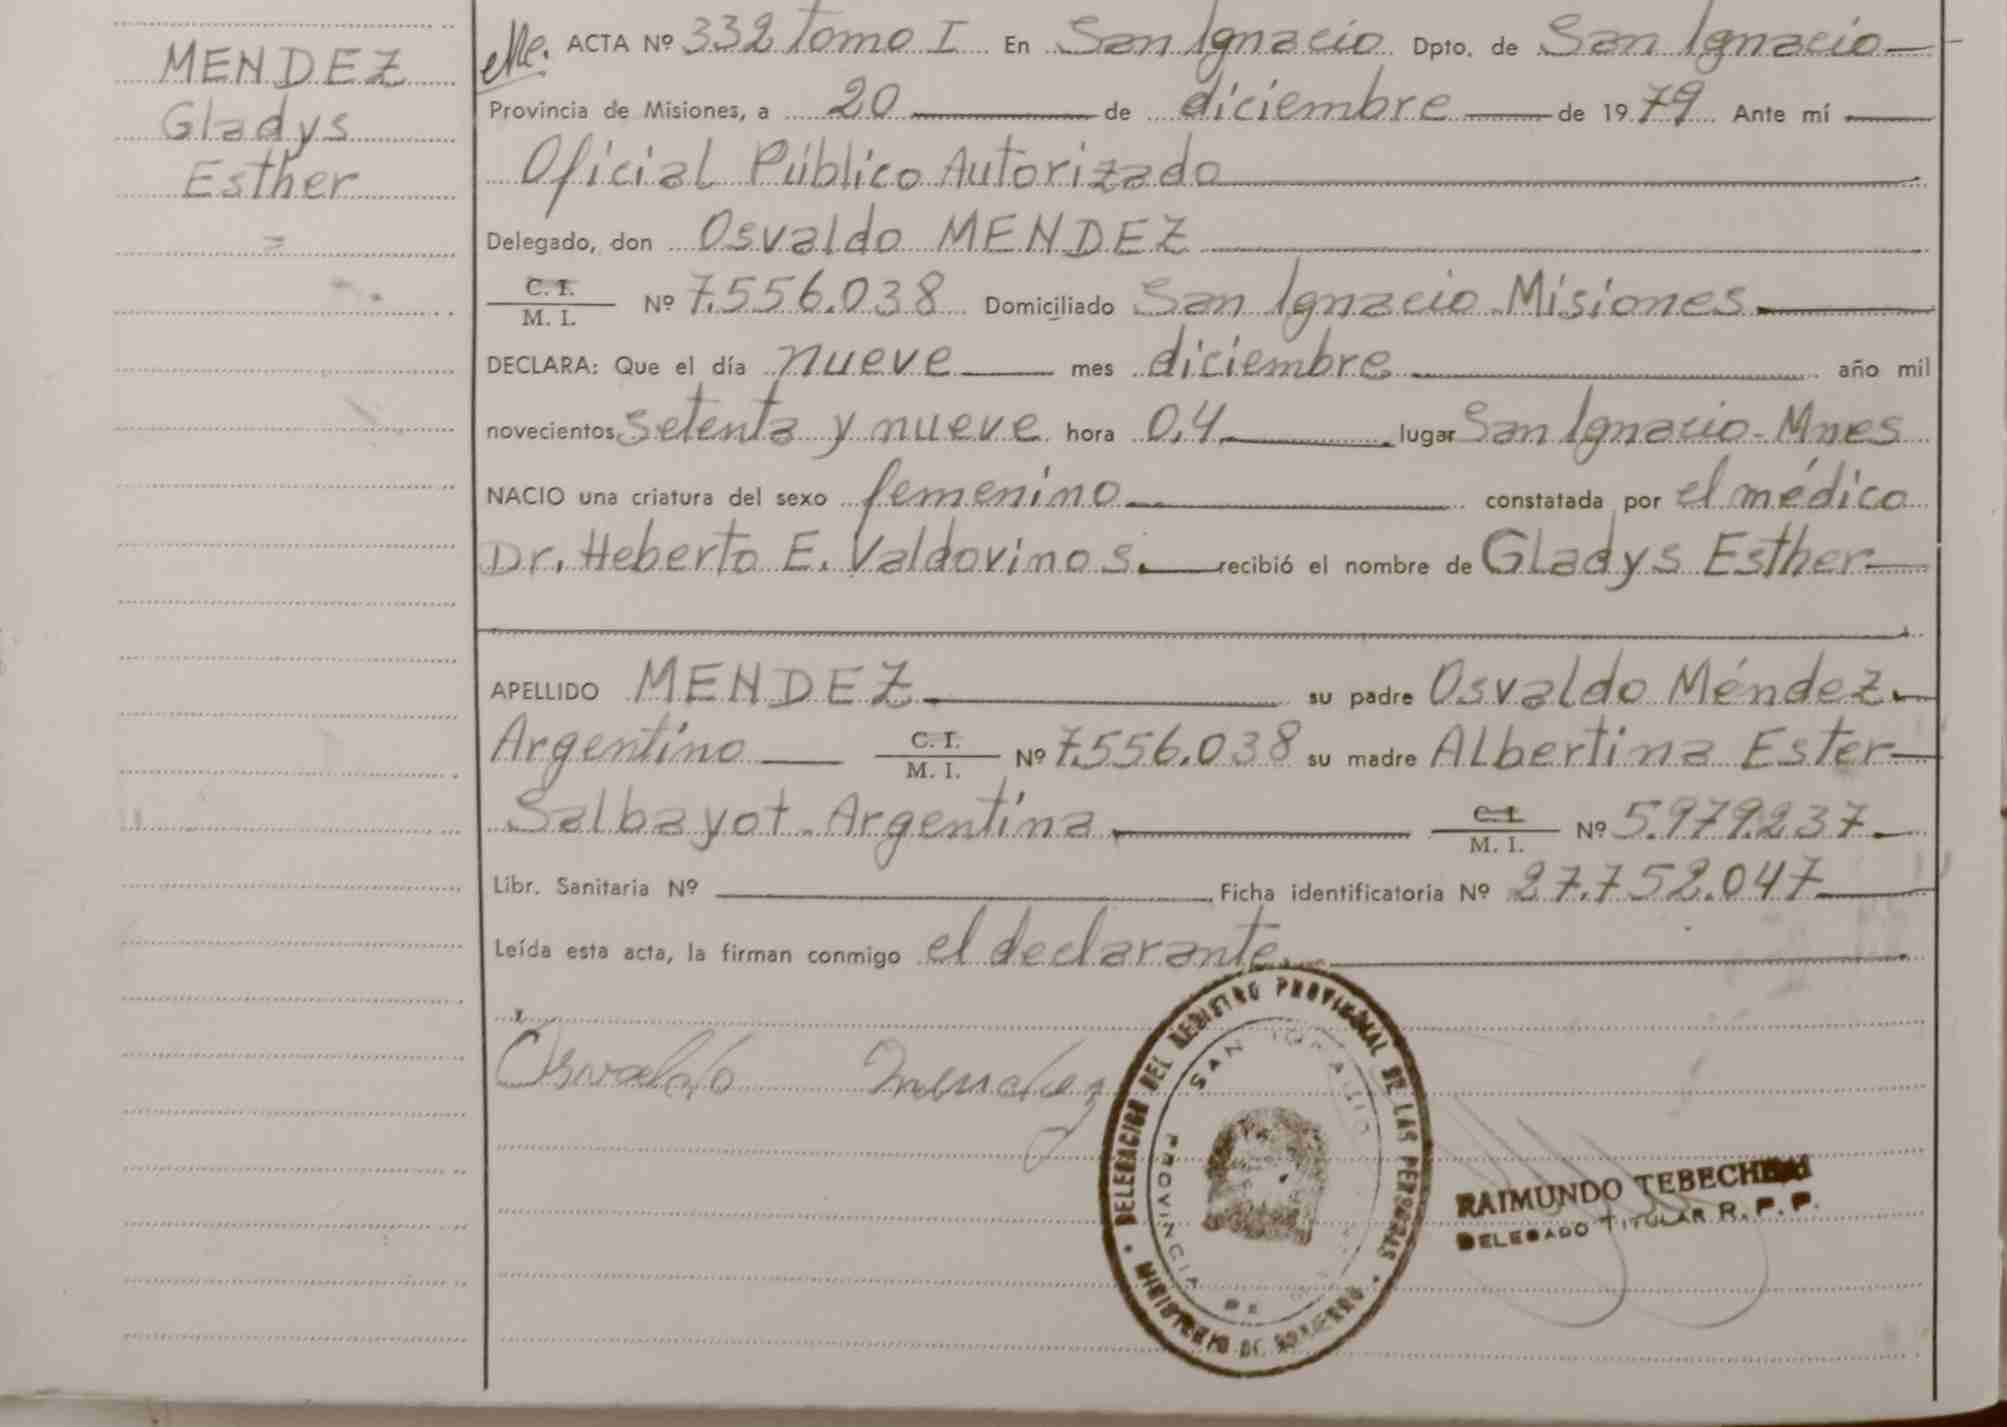 MENDEZ
Gladys
Esther
ACTA Nº 332 Tomo I En San Ignacio Dpto. de San Ignacio
Provincia de Misiones, a 20 de diciembre de 1979 Ante mí
Oficial Público Autorizado
Delegado, don Osvaldo MENDEZ
C. I.
M. I. Nº 7.556.038 Domiciliado San Ignacio-Misiones
DECLARA: Que el día nueve mes diciembre año mil
novecientos setenta y nueve hora 0,4 lugar San Ignacio-Mnes
NACIO una criatura del sexo femenino constatada por el médico
Dr. Heberto E. Valdovinos. recibió el nombre de Gladys Esther
APELLIDO MENDEZ su padre Osvaldo Méndez
Argentino C. I.
M. I. Nº 7.556.038 su madre Albertina Ester
Salbayot-Argentina C. I.
M. I. Nº 5.979.237
Libr. Sanitaria Nº Ficha identificatoria Nº 27.752.047
Leída esta acta, la firman conmigo el declarante
Osvaldo Mendez
DELEGACION DEL REGISTRO PROVINCIAL DE LAS PERSONAS
MINISTERIO DE GOBIERNO
SAN
PROVINCIA DE
RAIMUNDO
DELEGADO TITULAR R. P. P.